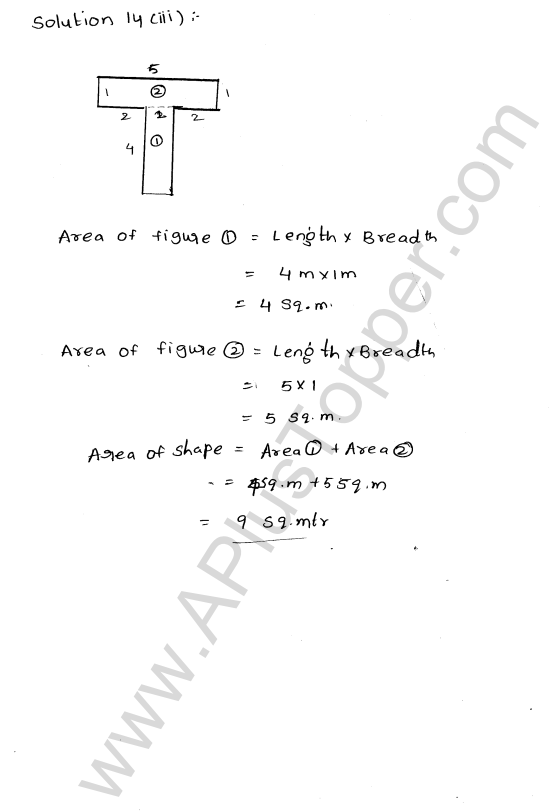 Solution 14 (iii) :-
5
1 ② 1
2 2 2
4 ①
Area of figure ① = Length x Breadth
= 4 m x 1m
= 4 Sq.m.
Area of figure ② = Length x Breadth
= 5 x 1
= 5 Sq.m.
Area of shape = Area ① + Area ②
= 4sq.m + 5 sq.m
= 9 sq.mtr
www.APlusTopper.com